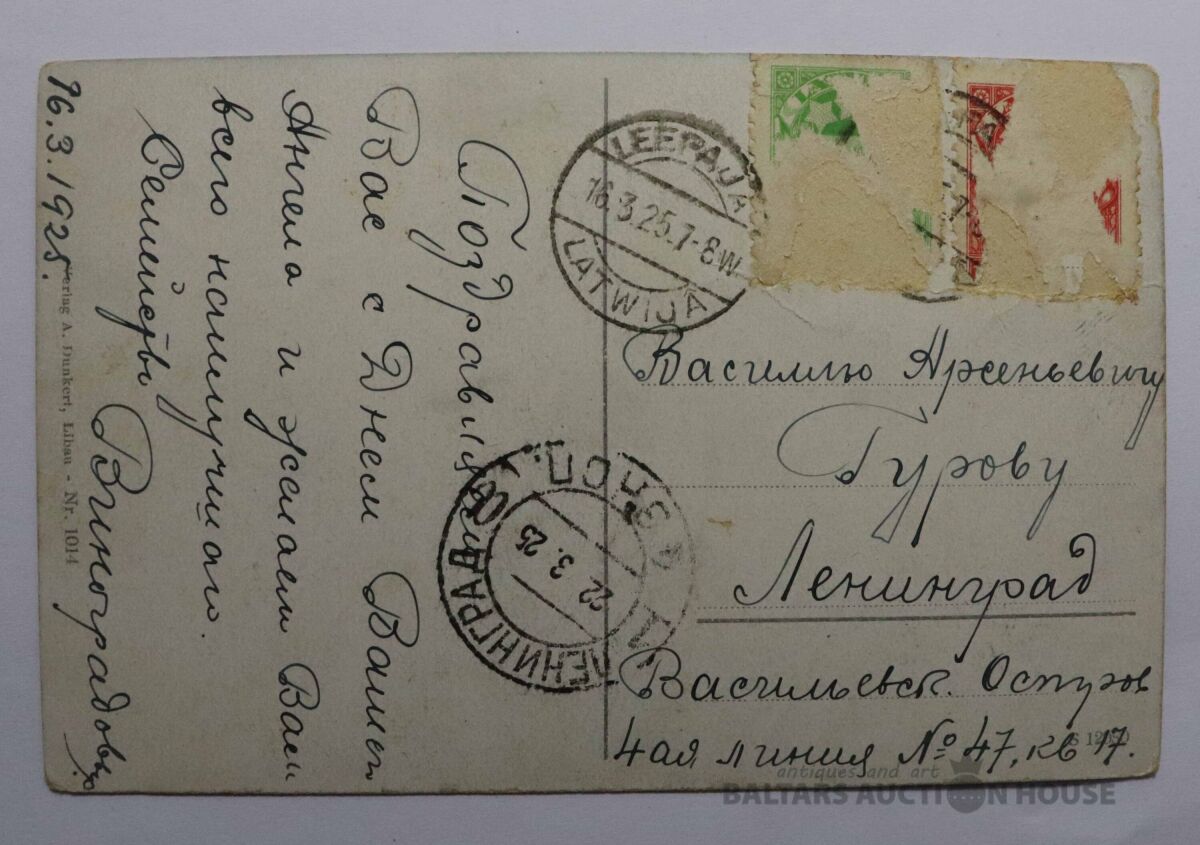 Поздравляем
Вас с Днем Вашего
Ангела и желаем Вам
всего наилучшаго.
Семейство Виноградовых.
16.3.1925.
Verlag A. Dunkert, Libau - Nr. 1014
LEEPAJA
16.3.25.7-8W
LATWIJA
ЛЕНИНГРАД
22.3.25
ЭКСП.
Василию Арсеньевичу
Гурову
Ленинград
Васильевск. Остров
4ая линия № 47, кв 17.
antiques and art
BALTARS AUCTION HOUSE